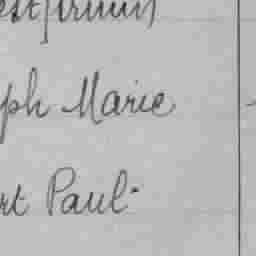 ph Marie
rt Paul